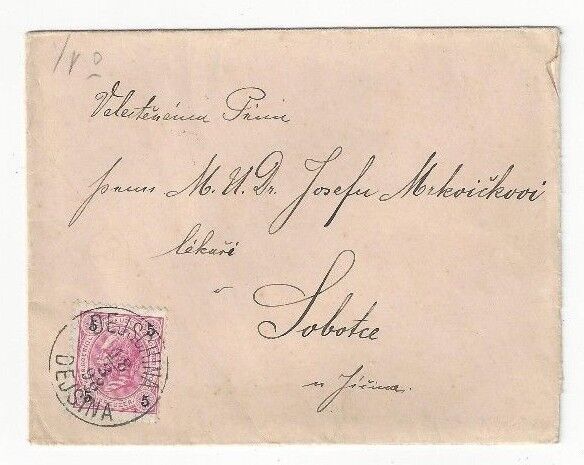 Velectěnému Pánu
panu M. U. Dr. Josefu Mrkvičkovi
lékaři
v
Sobotce
u Jičína
5 5
DEJSINA
DEJSINA
5 5